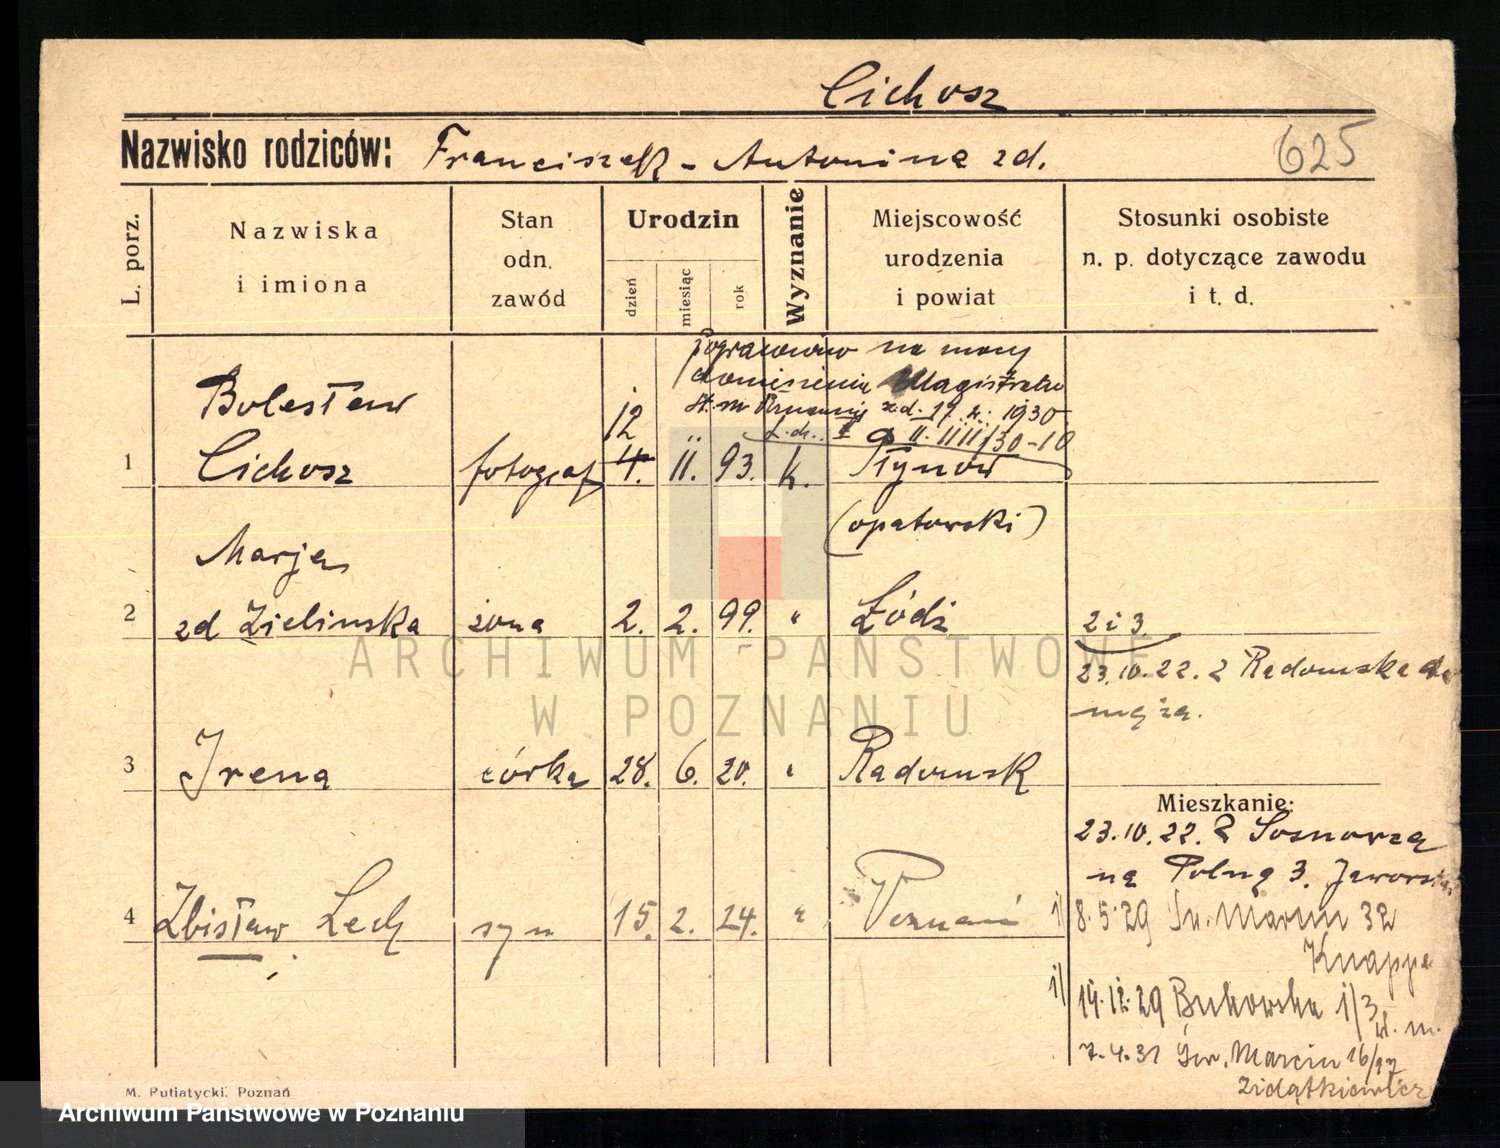 Cichosz
Nazwisko rodziców: Franciszek - Antonina zd.
625
L. porz.
Nazwiska
i imiona
Stan
odn.
zawód
Urodzin
dzień
miesiąc
rok
Wyznanie
Miejscowość
urodzenia
i powiat
Stosunki osobiste
n. p. dotyczące zawodu
i t. d.
Poprawiono na mocy
doniesienia Magistratu
st. m. Poznania z d. 17. 1930
1
Bolesław
Cichosz
fotograf
12
4. II. 93. k.
Tłynów
(opatowski)
2
Marja
zd Zielinska
żona
2. 2. 99. "
Łódź
2 i 3.
23.10.22. z Radomska do
męża.
3
Irena
córka
28. 6. 20. "
Radomsk
Mieszkanie:
23.10.22. z Sosnowca
na Polną 3. Jaworski
4
Zbisław Lech
syn
15. 2. 24. "
Poznań
8.5.29 Św. Marcin 32
Knappe
14.12.29 Bukowska 1/3
7.4.31 Św. Marcin 16/17
ARCHIWUM PAŃSTWOWE
W POZNANIU
M. Putiatycki. Poznań
Archiwum Państwowe w Poznaniu